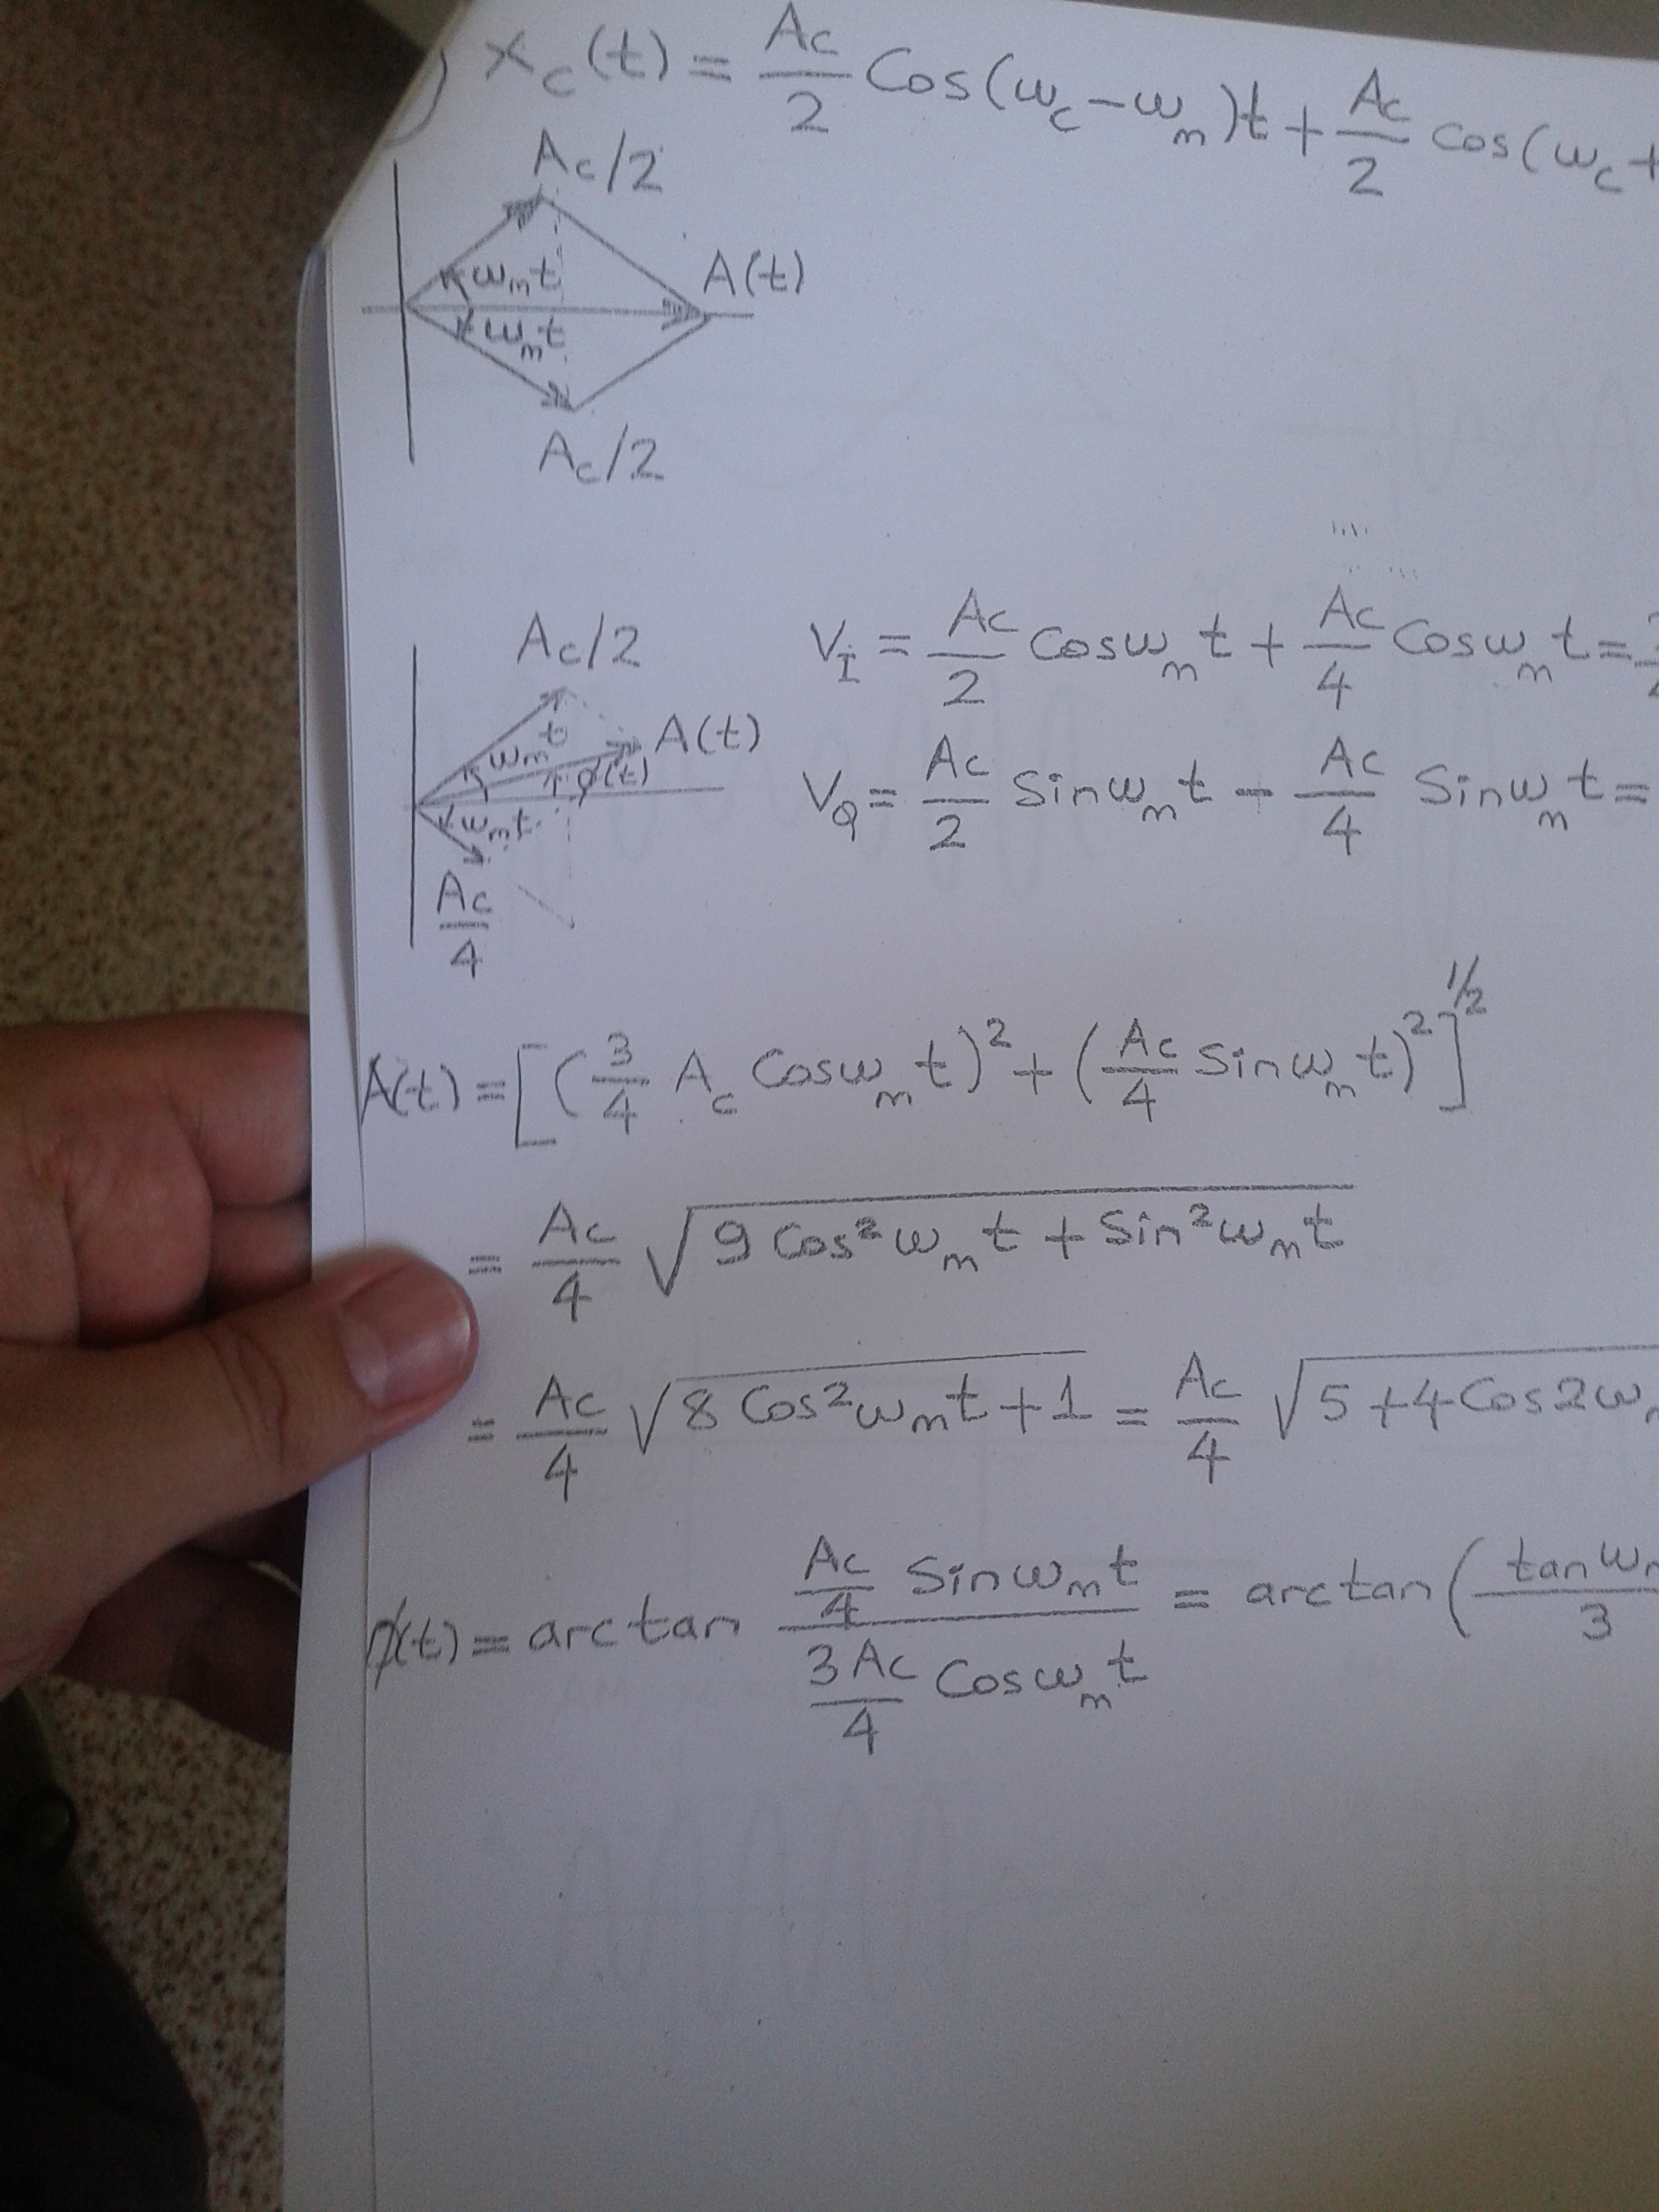 ) x_c(t) = Ac/2 Cos(ω_c-ω_m)t + Ac/2 cos(ω_c+
Ac/2
ω_m t
A(t)
ω_m t
Ac/2
Ac/2
ω_m t
A(t)
φ(t)
ω_m t
Ac/4
V_I = Ac/2 Cosω_m t + Ac/4 Cosω_m t =
V_Q = Ac/2 Sinω_m t - Ac/4 Sinω_m t =
A(t) = [(3/4 A_c Cosω_m t)^2 + (Ac/4 Sinω_m t)^2]^1/2
= Ac/4 √(9 Cos^2 ω_m t + Sin^2 ω_m t)
= Ac/4 √(8 Cos^2 ω_m t + 1) = Ac/4 √(5 + 4 Cos2ω_m
φ(t) = arctan (Ac/4 Sinω_m t)/(3Ac/4 Cosω_m t) = arctan (tan ω_m/3